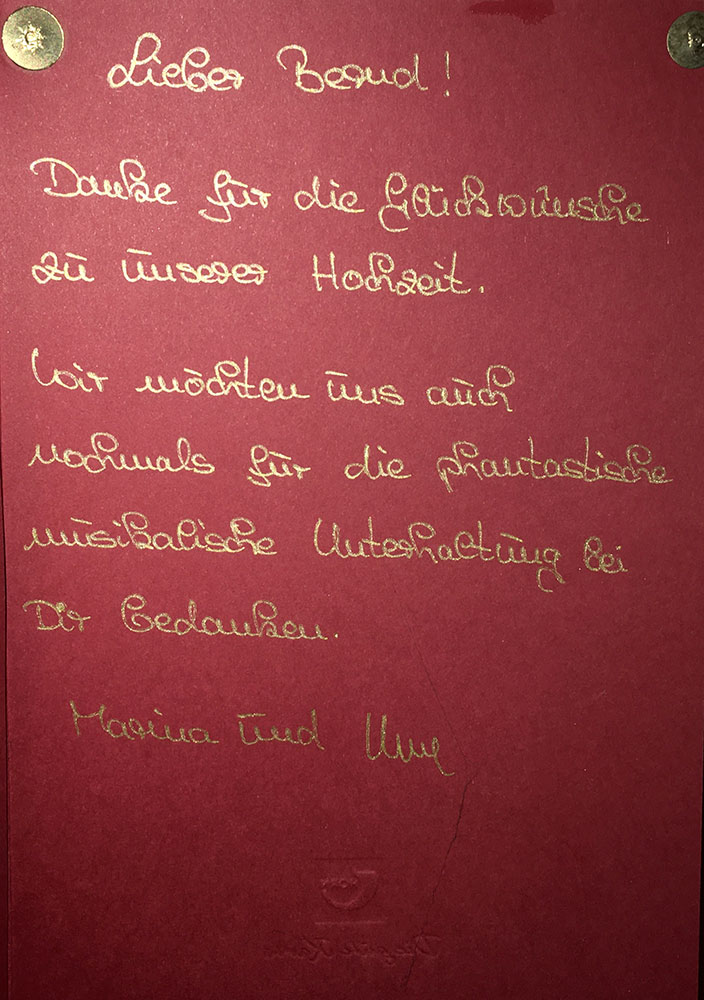 Lieber Bernd!
Danke für die Glückwünsche
zu unserer Hochzeit.
Wir möchten uns auch
nochmals für die phantastische
musikalische Unterhaltung bei
Dir bedanken.
Marina und